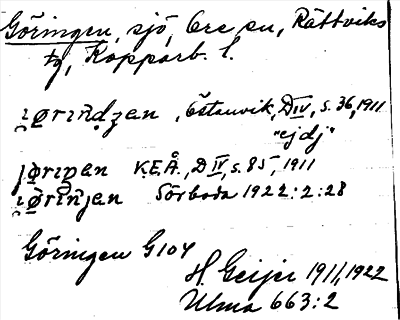 Göringen, sjö, Ore sn, Rättviks
tg, Kopparb. l.
Östanvik, D IV, s. 36, 1911
"ej dj"
K.E.Å., D IV, s. 85, 1911
Sörboda 1922:2:28
Göringen G104
H. Geijer 1911, 1922
Ulma 663:2